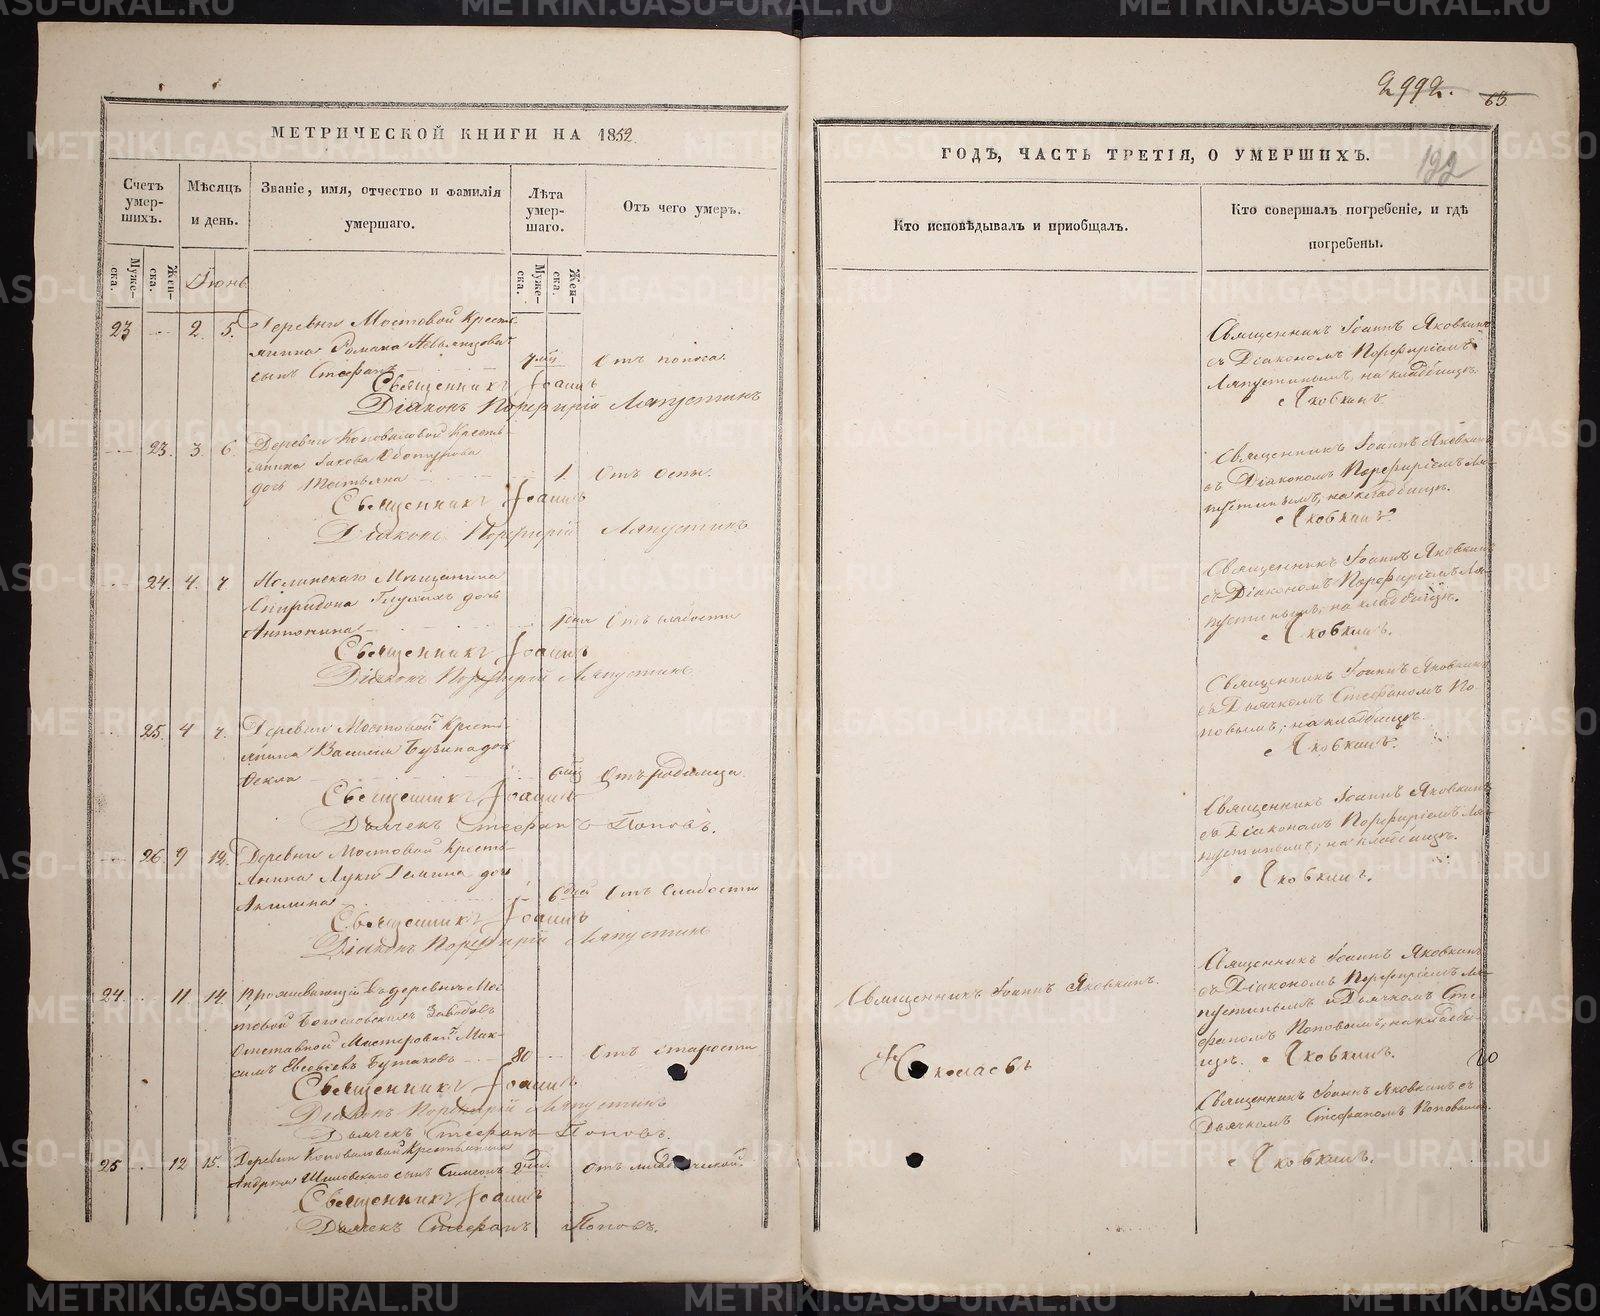 2992. 65
192
МЕТРИЧЕСКОЙ КНИГИ НА 1852
Счетъ умер-шихъ.
Мѣсяцъ и день.
Званіе, имя, отчество и фамилія умершаго.
Лѣта умер-шаго.
Отъ чего умеръ.
Муже-ска.
Жен-ска.
Іюнь
Муже-ска.
Жен-ска.
23 2. 5. Деревни Мостовой кресть-
янина Романа
сынъ Стефанъ Отъ поноса.
Священникъ Іоаннъ
Діаконъ Порфирій Ляпустинъ
23. 3. 6. Деревни Коноваловой кресть-
янина Іакова
дочь 1. Отъ оспы.
Священникъ Іоаннъ
Діаконъ Порфирій Ляпустинъ
24. 4. 7. Мѣщанина
Спиридона Глухихъ дочь
Антонина Отъ слабости
Священникъ Іоаннъ
Діаконъ Порфирій Ляпустинъ
25. 4 7. Деревни Мостовой кресть-
янина Василія дочь
Ѳекла Отъ родимца.
Священникъ Іоаннъ
Дьячекъ Стефанъ Поповъ.
26. 9 12. Деревни Мостовой кресть-
янина Луки дочь
Акилина 6 дней Отъ слабости
Священникъ Іоаннъ
Діаконъ Порфирій Ляпустинъ
24. 11 14. Проживающій въ деревнѣ Мос-
товой Богословскихъ заводовъ
Отставной Мастеровой Мак-
симъ Евсеевъ Бутаковъ 80 Отъ старости
Священникъ Іоаннъ
Діаконъ Порфирій Ляпустинъ
Дьячекъ Стефанъ Поповъ.
25 12 15. Деревни Коноваловой крестьянина
Андрея сынъ Симеонъ
Священникъ Іоаннъ
Дьячекъ Стефанъ Поповъ.
ГОДЪ, ЧАСТЬ ТРЕТІЯ, О УМЕРШИХЪ.
Кто исповѣдывалъ и пріобщалъ.
Кто совершалъ погребеніе, и гдѣ погребены.
Священникъ Іоаннъ Яковкинъ
съ Діакономъ Порфиріемъ
Ляпустинымъ, на кладбищѣ.
Яковкинъ
Священникъ Іоаннъ Яковкинъ
съ Діакономъ Порфиріемъ Ля-
пустинымъ, на кладбищѣ.
Яковкинъ
Священникъ Іоаннъ Яковкинъ
съ Діакономъ Порфиріемъ Ля-
пустинымъ, на кладбищѣ.
Яковкинъ.
Священникъ Іоаннъ Яковкинъ
съ Дьячкомъ Стефаномъ По-
повымъ; на кладбищѣ.
Яковкинъ.
Священникъ Іоаннъ Яковкинъ
съ Діакономъ Порфиріемъ Ля-
пустинымъ, на кладбищѣ.
Яковкинъ.
Священникъ Іоаннъ Яковкинъ.
Священникъ Іоаннъ Яковкинъ
съ Діакономъ Порфиріемъ Ля-
пустинымъ и Дьячкомъ Сте-
фаномъ Поповымъ, на кладби-
щѣ. Яковкинъ.
Священникъ Іоаннъ Яковкинъ съ
Дьячкомъ Стефаномъ Поповымъ.
Яковкинъ.
METRIKI.GASO-URAL.RU